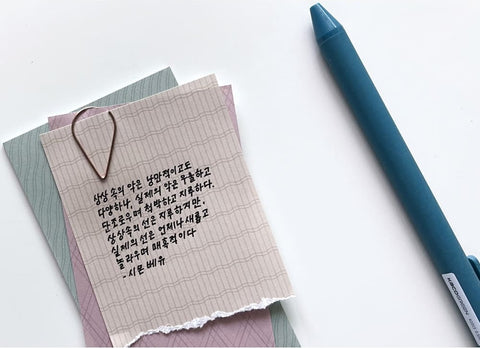 상상 속의 악은 낭만적이고도
다양하나, 실제의 악은 우울하고
단조로우며 척박하고 지루하다.
상상속의 선은 지루하지만,
실제의 선은 언제나 새롭고
놀라우며 매혹적이다
- 시몬 베유